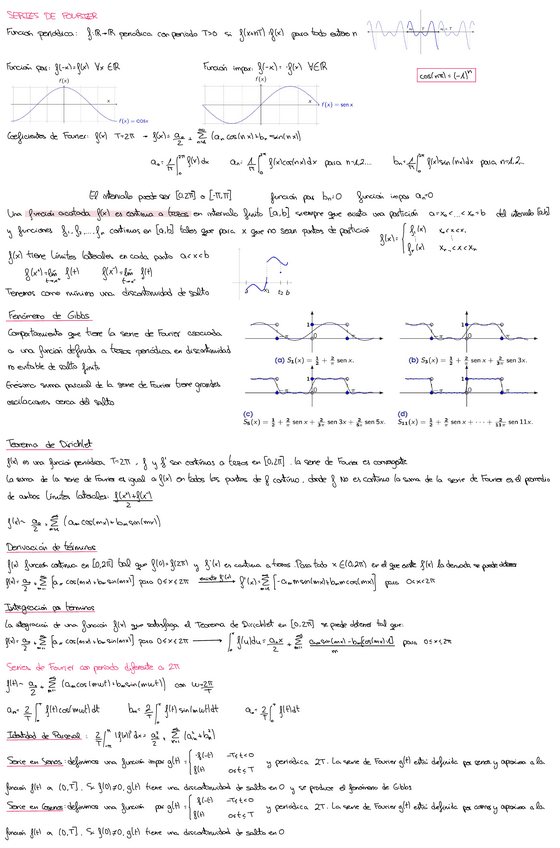 SERIES DE FOURIER
Función periódica: f:ℝ→ℝ periódica con periodo T>0 si f(x+nT)=f(x) para todo entero n
Función par: f(-x)=f(x) ∀x∈ℝ
Función impar: f(-x)=-f(x) ∀x∈ℝ
cos(nπ)=(-1)ⁿ
f(x)
x
f(x) = cos x
f(x)
x
f(x) = sen x
Coeficientes de Fourier: f(x) T=2π → f(x)= a₀/2 + Σ (aₙ cos(nx)+bₙ sen(nx))
a₀= 1/π ∫ f(x)dx aₙ= 1/π ∫ f(x)cos(nx)dx para n=1,2... bₙ= 1/π ∫ f(x)sen(nx)dx para n=1,2...
El intervalo puede ser [0,2π] o [-π,π] función par bₙ=0 función impar aₙ=0
Una función acotada f(x) es continua a trozos en intervalo finito [a,b] siempre que exista una partición a=x₀<...<xₙ=b del intervalo [a,b]
y funciones f₁,f₂,...,fₙ continuas en [a,b] tales que para x que no sean puntos de partición
f(x) tiene límites laterales en cada punto a<x<b
Tenemos como mínimo una discontinuidad de salto
Fenómeno de Gibbs
Comportamiento que tiene la serie de Fourier asociada
a una función definida a trozos periódica en discontinuidad
no evitable de salto finito
Enésima suma parcial de la serie de Fourier tiene grandes
oscilaciones cerca del salto
(a) S₁(x) = 1/2 + 2/π sen x.
(b) S₃(x) = 1/2 + 2/π sen x + 2/3π sen 3x.
(c)
S₅(x) = 1/2 + 2/π sen x + 2/3π sen 3x + 2/5π sen 5x.
(d)
S₁₁(x) = 1/2 + 2/π sen x + ··· + 2/11π sen 11x.
Teorema de Dirichlet
f(x) es una función periódica T=2π, f y f' son continuas a trozos en [0,2π]. la serie de Fourier es convergente
La suma de la serie de Fourier es igual a f(x) en todos los puntos de f continua, donde f NO es continua la suma de la serie de Fourier es el promedio
de ambos límites laterales: f(x⁺)+f(x⁻)/2
f(x)~ a₀/2 + Σ (aₘ cos(mx)+bₘ sin(mx))
Derivación de términos
f(x) función continua en [0,2π] tal que f(0)=f(2π) y f'(x) es continua a trozos. Para todo x∈(0,2π) en el que existe f'(x) la derivada se puede obtener
f(x)= a₀/2 + Σ [aₘ cos(mx)+bₘ sin(mx)] para 0≤x≤2π f'(x)= Σ [-aₘ m sin(mx)+bₘ m cos(mx)] para 0<x<2π
Integración por términos
La integración de una función f(x) que satisfaga el Teorema de Dirichlet en [0,2π] se puede obtener tal que:
f(x)= a₀/2 + Σ [aₘ cos(mx)+bₘ sin(mx)] para 0≤x≤2π → ∫ f(u)du= a₀x/2 + Σ aₘ sin(mx)-bₘ[cos(mx)-1]/m para 0≤x≤2π
Series de Fourier con periodo diferente a 2π
f(t)~ a₀/2 + Σ (aₘ cos(mωt)+bₘ sin(mωt)) con ω=2π/T
aₘ= 2/T ∫ f(t)cos(mωt)dt bₘ= 2/T ∫ f(t)sin(mωt)dt a₀= 2/T ∫ f(t)dt
Identidad de Parseval:
Serie en Senos: definimos una función impar g(t)= { -f(-t) -T≤t<0
f(t) 0≤t≤T y periódica 2T. La serie de Fourier g(t) estás definida por senos y aproxima a la
función f(t) a (0,T]. Si f(0)≠0, g(t) tiene una discontinuidad de salto en 0 y se produce el fenómeno de Gibbs
Serie en Cosenos: definimos una función par g(t)= { f(-t) -T≤t<0
f(t) 0≤t≤T y periódica 2T. La serie de Fourier g(t) estás definida por cosenos y aproxima a la
función f(t) a (0,T]. Si f(0)≠0, g(t) tiene una discontinuidad de salto en 0